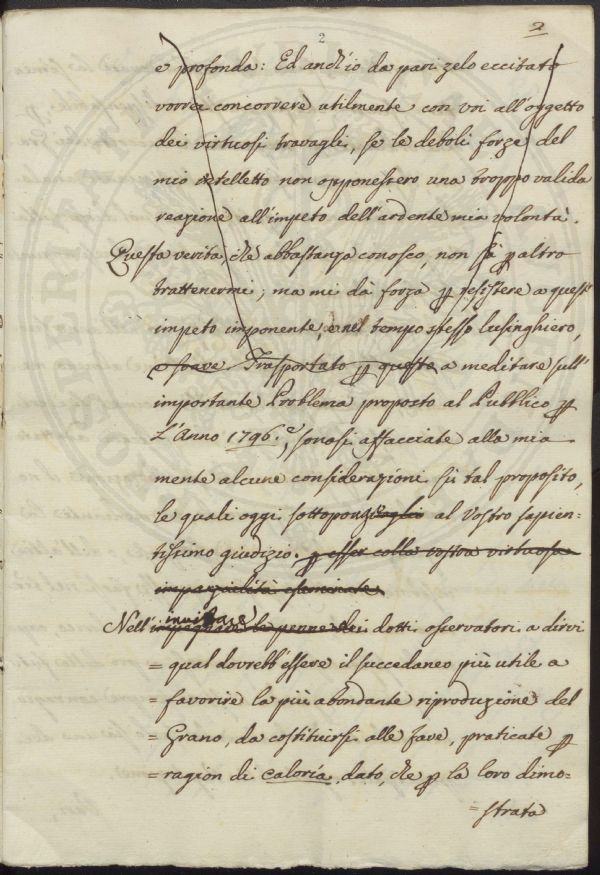 2
2
e profonda: Ed anch'io da pari zelo eccitato
vorrei concorrere utilmente con voi all'oggetto
dei virtuosi travagli, se le deboli forze del
mio intelletto non opponessero una troppo valida
reazione all'impeto dell'ardente mia volontà.
Questa verità, che abbastanza conosco, non sà p altro
trattenermi; ma mi dà forza p resistere a quest'
impeto imponente, e nel tempo stesso lusinghiero,
e soave Trasportato p questo a meditare sull'
importante Problema proposto al Pubblico p
L'Anno 1796.e, sonosi affacciate alla mia
mente alcune considerazioni sù tal proposito,
le quali oggi sottopongo al Vostro sapien-
tissimo giudizio. p esser colla vostra virtuosa
imparzialità esaminate
invitare
Nell' impegnare le penne dei dotti osservatori a dirvi
= qual dovrebb'essere il succedaneo più utile a
= favorire la più abondante riproduzione del
= Grano, da costituirsi alle fave, praticate p
= ragion di caloría, dato, che p la loro dimo=
= strata